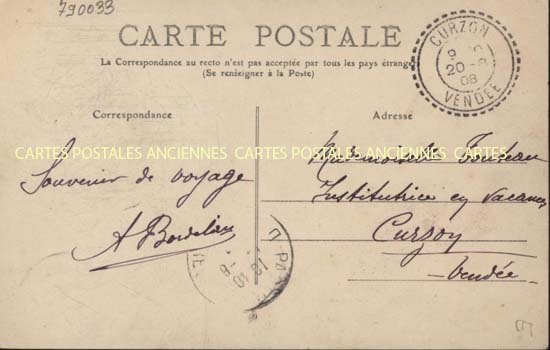 790033
CARTE POSTALE
La Correspondance au recto n'est pas acceptée par tous les pays étrangers
(Se renseigner à la Poste)
CURZON
20 -8
08
VENDÉE
Correspondance
Adresse
CARTES POSTALES ANCIENNES CARTES POSTALES ANCIENNES CARTES
Souvenir de voyage
Mademoiselle
Institutrice en vacances
Curzon
Vendée